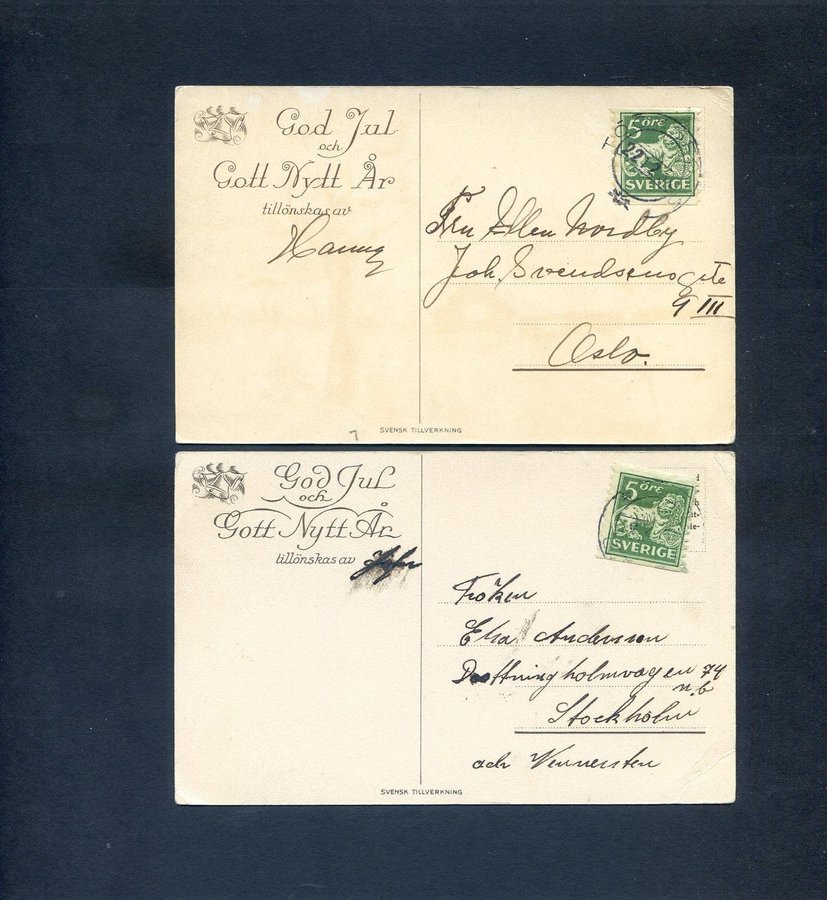 God Jul
och
Gott Nytt År
tillönskas av
Hanny
5 ÖRE
SVERIGE
22.12
Fru Ellen Nordby
Joh. Svendsensgte
9 III
Oslo.
SVENSK TILLVERKNING
God Jul
och
Gott Nytt År
tillönskas av
5 ÖRE
SVERIGE
Fröken
Elsa Andersson
Drottningholmvägen 74
n.b
Stockholm
och
SVENSK TILLVERKNING